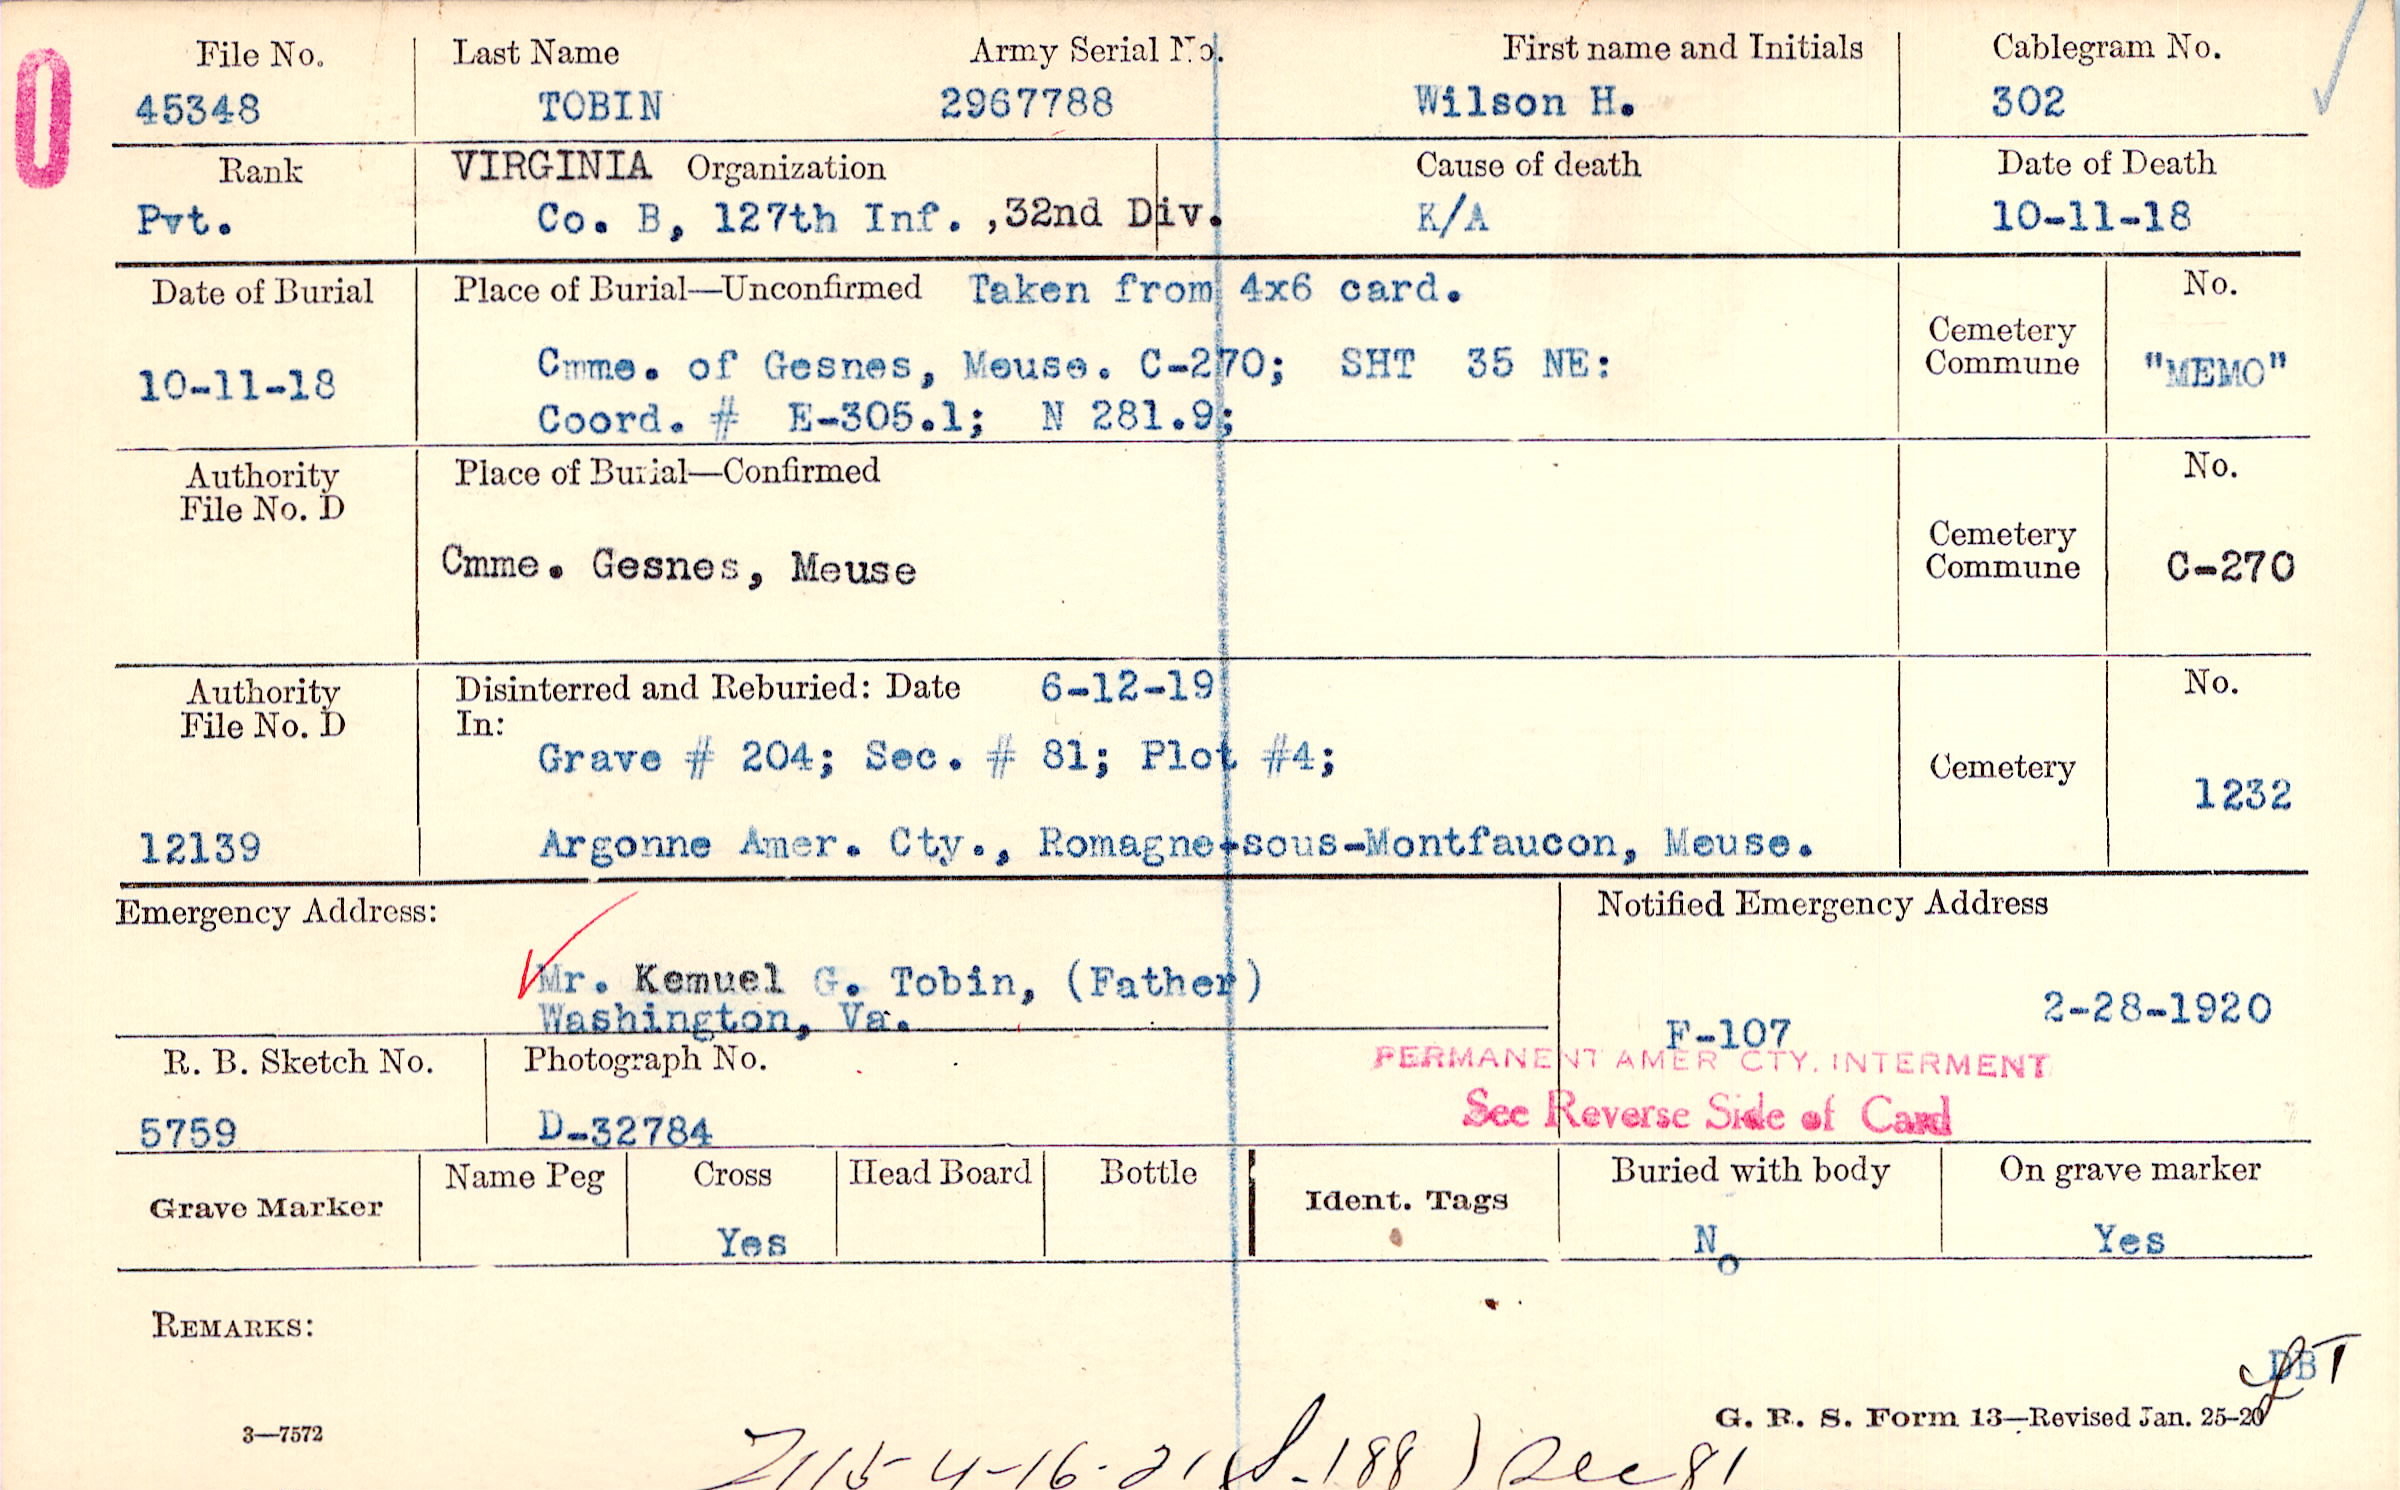 0
File No. Last Name Army Serial No. First name and Initials Cablegram No.
45348 TOBIN 2967788 Wilson H. 302
Rank VIRGINIA Organization Cause of death Date of Death
Pvt. Co. B, 127th Inf. ,32nd Div. K/A 10-11-18
Date of Burial Place of Burial—Unconfirmed Taken from 4x6 card. No.
Cemetery
10-11-18 Cmme. of Gesnes, Meuse. C-270; SHT 35 NE: Commune "MEMO"
Coord. # E-305.1; N 281.9;
Authority Place of Burial—Confirmed No.
File No. D
Cemetery
Cmme. Gesnes, Meuse Commune C-270
Authority Disinterred and Reburied: Date 6-12-19 No.
File No. D In:
Grave # 204; Sec. # 81; Plot #4; Cemetery
1232
12139 Argonne Amer. Cty., Romagne-sous-Montfaucon, Meuse.
Emergency Address: Notified Emergency Address
Mr. Kemuel G. Tobin, (Father)
Washington, Va. F-107 2-28-1920
R. B. Sketch No. Photograph No. PERMANENT AMER CTY. INTERMENT
5759 D-32784 See Reverse Side of Card
Grave Marker Name Peg Cross Head Board Bottle Ident. Tags Buried with body On grave marker
Yes No Yes
REMARKS:
DB
3—7572 G. R. S. Form 13—Revised Jan. 25-20
2115 4-16-21 (S-188) Sec 81